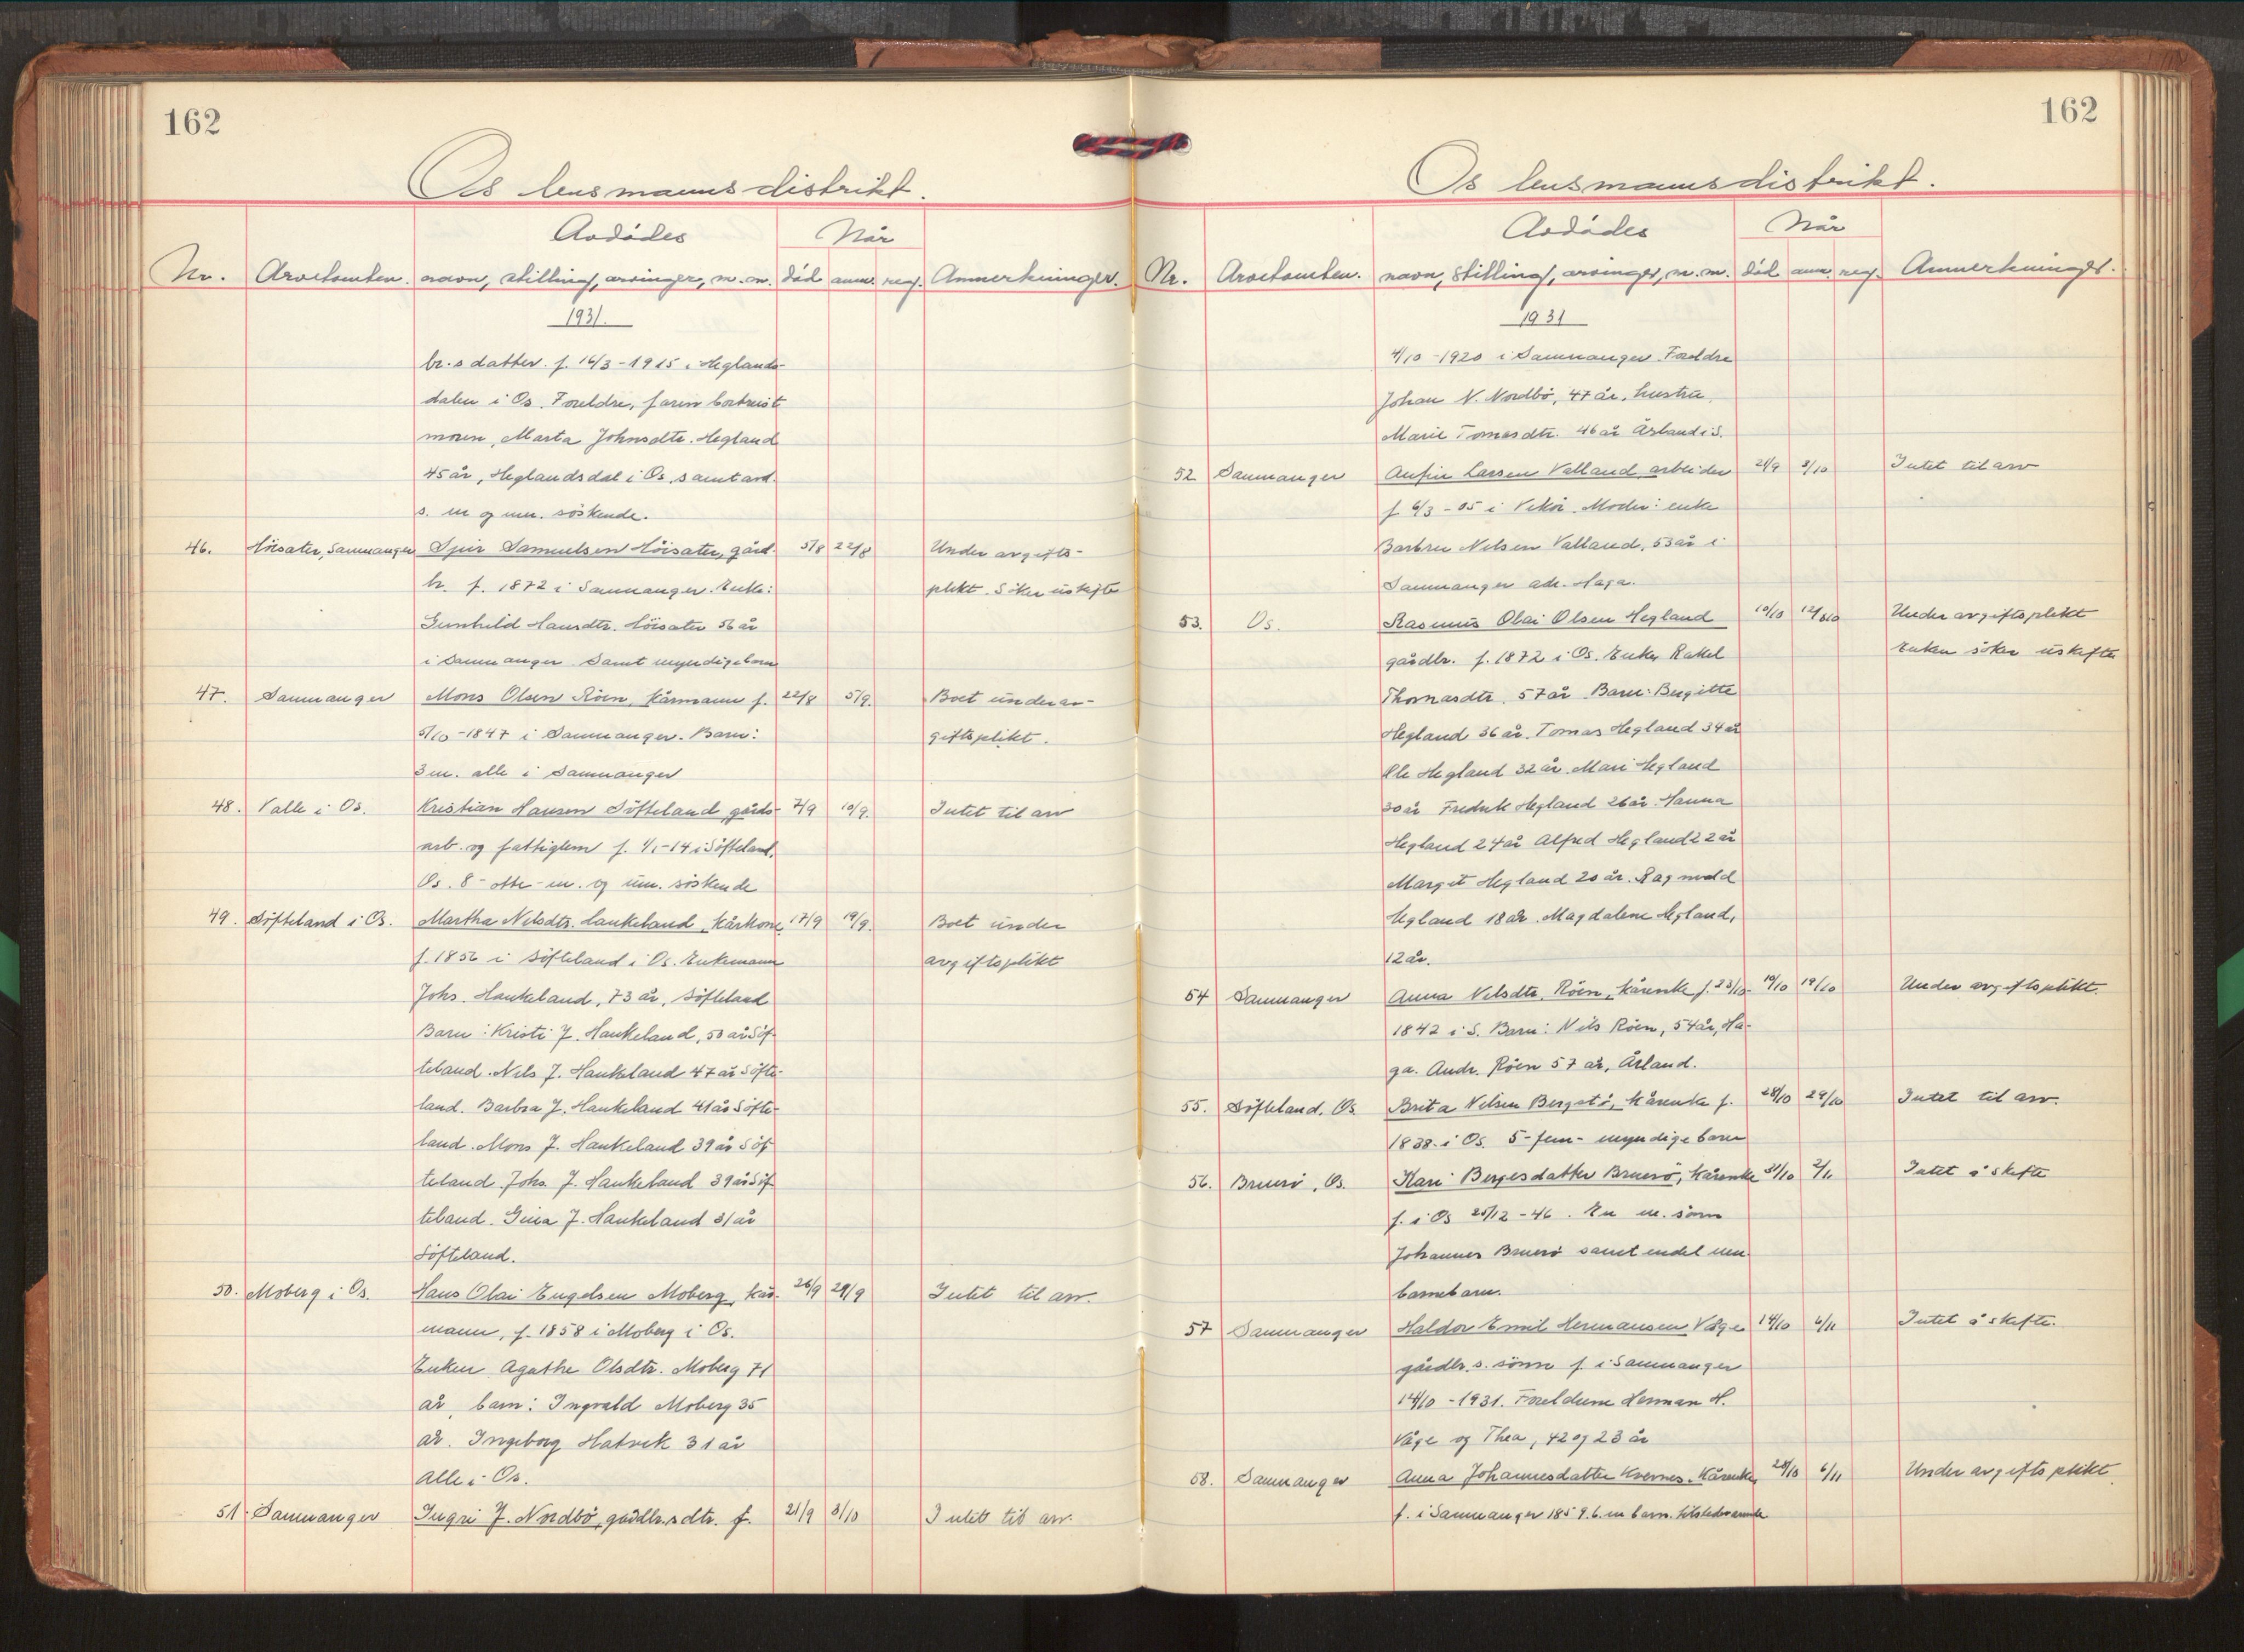 162
Os lensmannsdistrikt.
Avdødes
Når
Nr. Arvetomten. navn, stilling, arvinger, m.m. död anm. reg. Anmerkninger.
1931.
br.s datter. f. 16/3-1915 i Heglands-
dalen i Os. Foreldre, faren bortreist
moren, Marta Johnsdtr. Hegland
45 år, Heglandsdal i Os, samt
s. m og um. söskende.
46. Höisæter, Samnanger Sjur Samuelsen Höisæter, gård- 5/8 22/8 Under avgifts-
br. f. 1872 i Samnanger. Enke: plikt. Söker uskifte
Gunhild Hansdtr. Höisæter 56 år
i Samnanger. Samt myndige barn
47. Samnanger Mons Olsen Röen, kårmann f. 22/8 5/9. Boet under av-
5/10-1847 i Samnanger. Barn: giftsplikt.
3 m. alle i Samnanger
48. Valle i Os. Kristian Hansen Söfteland gårds- 7/9 10/9. Intet til arv
arb. og fattiglem f. 1/1-14 i Söfteland,
Os. 8-otte-m. og um. söskende
49. Söfteland i Os. Martha Nilsdtr. Haukeland, kårkone 17/9 19/9. Boet under
f. 1856 i Söfteland i Os. Enkemann avgiftsplikt
Johs. Haukeland, 73 år, Söfteland
Barn: Kristi J. Haukeland, 50 år Söf-
teland. Nils J. Haukeland 47 år Söfte-
land. Barbra J. Haukeland 41 år Söfte-
land. Mons J. Haukeland 39 år Söf
teland. Johs. J. Haukeland 39 år Söf-
teland. Gina J. Haukeland 31 år
Söfteland.
50. Moberg i Os. Hans Olai Engelsen Moberg, kår- 26/9 29/9 Intet til arv.
mann, f. 1858 i Moberg i Os.
Enken Agathe Olsdtr. Moberg 71
år, barn: Ingvald Moberg 35
år. Ingeborg Hatvik 31 år
Alle i Os.
51. Samnanger Ingri J. Nordbö, gårdbr.s dtr. f. 21/9 3/10 Intet til arv.
162
Os lensmannsdistrikt.
Avdödes
Når
Nr. Arvetomten. navn, stilling, arvinger, m.m. död anm. reg. Anmerkninger.
1931
4/10-1920 i Samnanger. Foreldre
Johan N. Nordbö, 47 år, hustru,
Marie Tomasdtr. 46 år Årland i S.
52 Samnanger Anfin Larsen Valland arbeider 21/9 3/10 Intet til arv
f 6/3-05 i Vikör. Moder: enke
Barbru Nilsen Valland, 53 år i
Samnanger adr. Haga.
53. Os. Rasmus Olai Olsen Hegland 10/10 12/10 Under avgiftsplikt
gårdbr. f. 1872 i Os. Enke, Rakel Enken söker uskifte
Thomasdtr. 57 år. Barn: Birgitte
Hegland 36 år. Tomas Hegland 34 år
Ole Hegland 32 år. Mari Hegland
30 år Fredrik Hegland 26 år. Hanna
Hegland 24 år Alfred Hegland 22 år
Margit Hegland 20 år. Ragnvald
Hegland 18 år. Magdalene Hegland,
12 år.
54 Samnanger Anna Nilsdtr. Röen, kårenke f. 23/10- 10/10 19/10 Under avgiftsplikt.
1842 i S. Barn: Nils Röen, 54 år, Ha-
ga. Andr. Röen 57 år, Årland.
55. Söfteland, Os Brita Nilsen Bergstö, kårenke f. 28/10 29/10 Intet til arv.
1838 i Os. 5-fem- myndige barn
56. Bruerö, Os. Kari Bergesdatter Bruerö, kårenke 31/10 2/11 Intet å skifte
f. i Os 25/12-46. En m. sönn
Johannes Bruerö samt endel um
barnebarn.
57 Samnanger Haldor Emil Hermansen Våge 14/10 6/11 Intet å skifte.
gårdbr.s. sönn f. i Samnanger
14/10-1931. Foreldrene Herman H.
Våge og Thea, 42 og 23 år
58. Samnanger Anna Johannesdatter Kvernes. kårenke 28/10 6/11 Under avgiftsplikt
f. i Samnanger 1859. 6. m barn. tilstedeværende